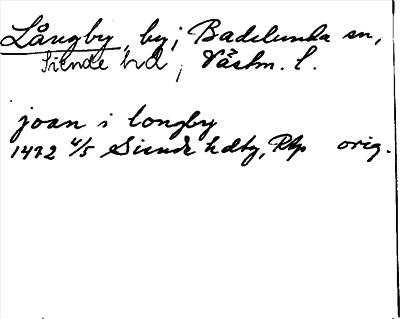 Långby, by; Badelunda sn,
Siende hd, Våstm. l.
joan i longby
1472 4/5 Siende hdtg, Rkp orig.